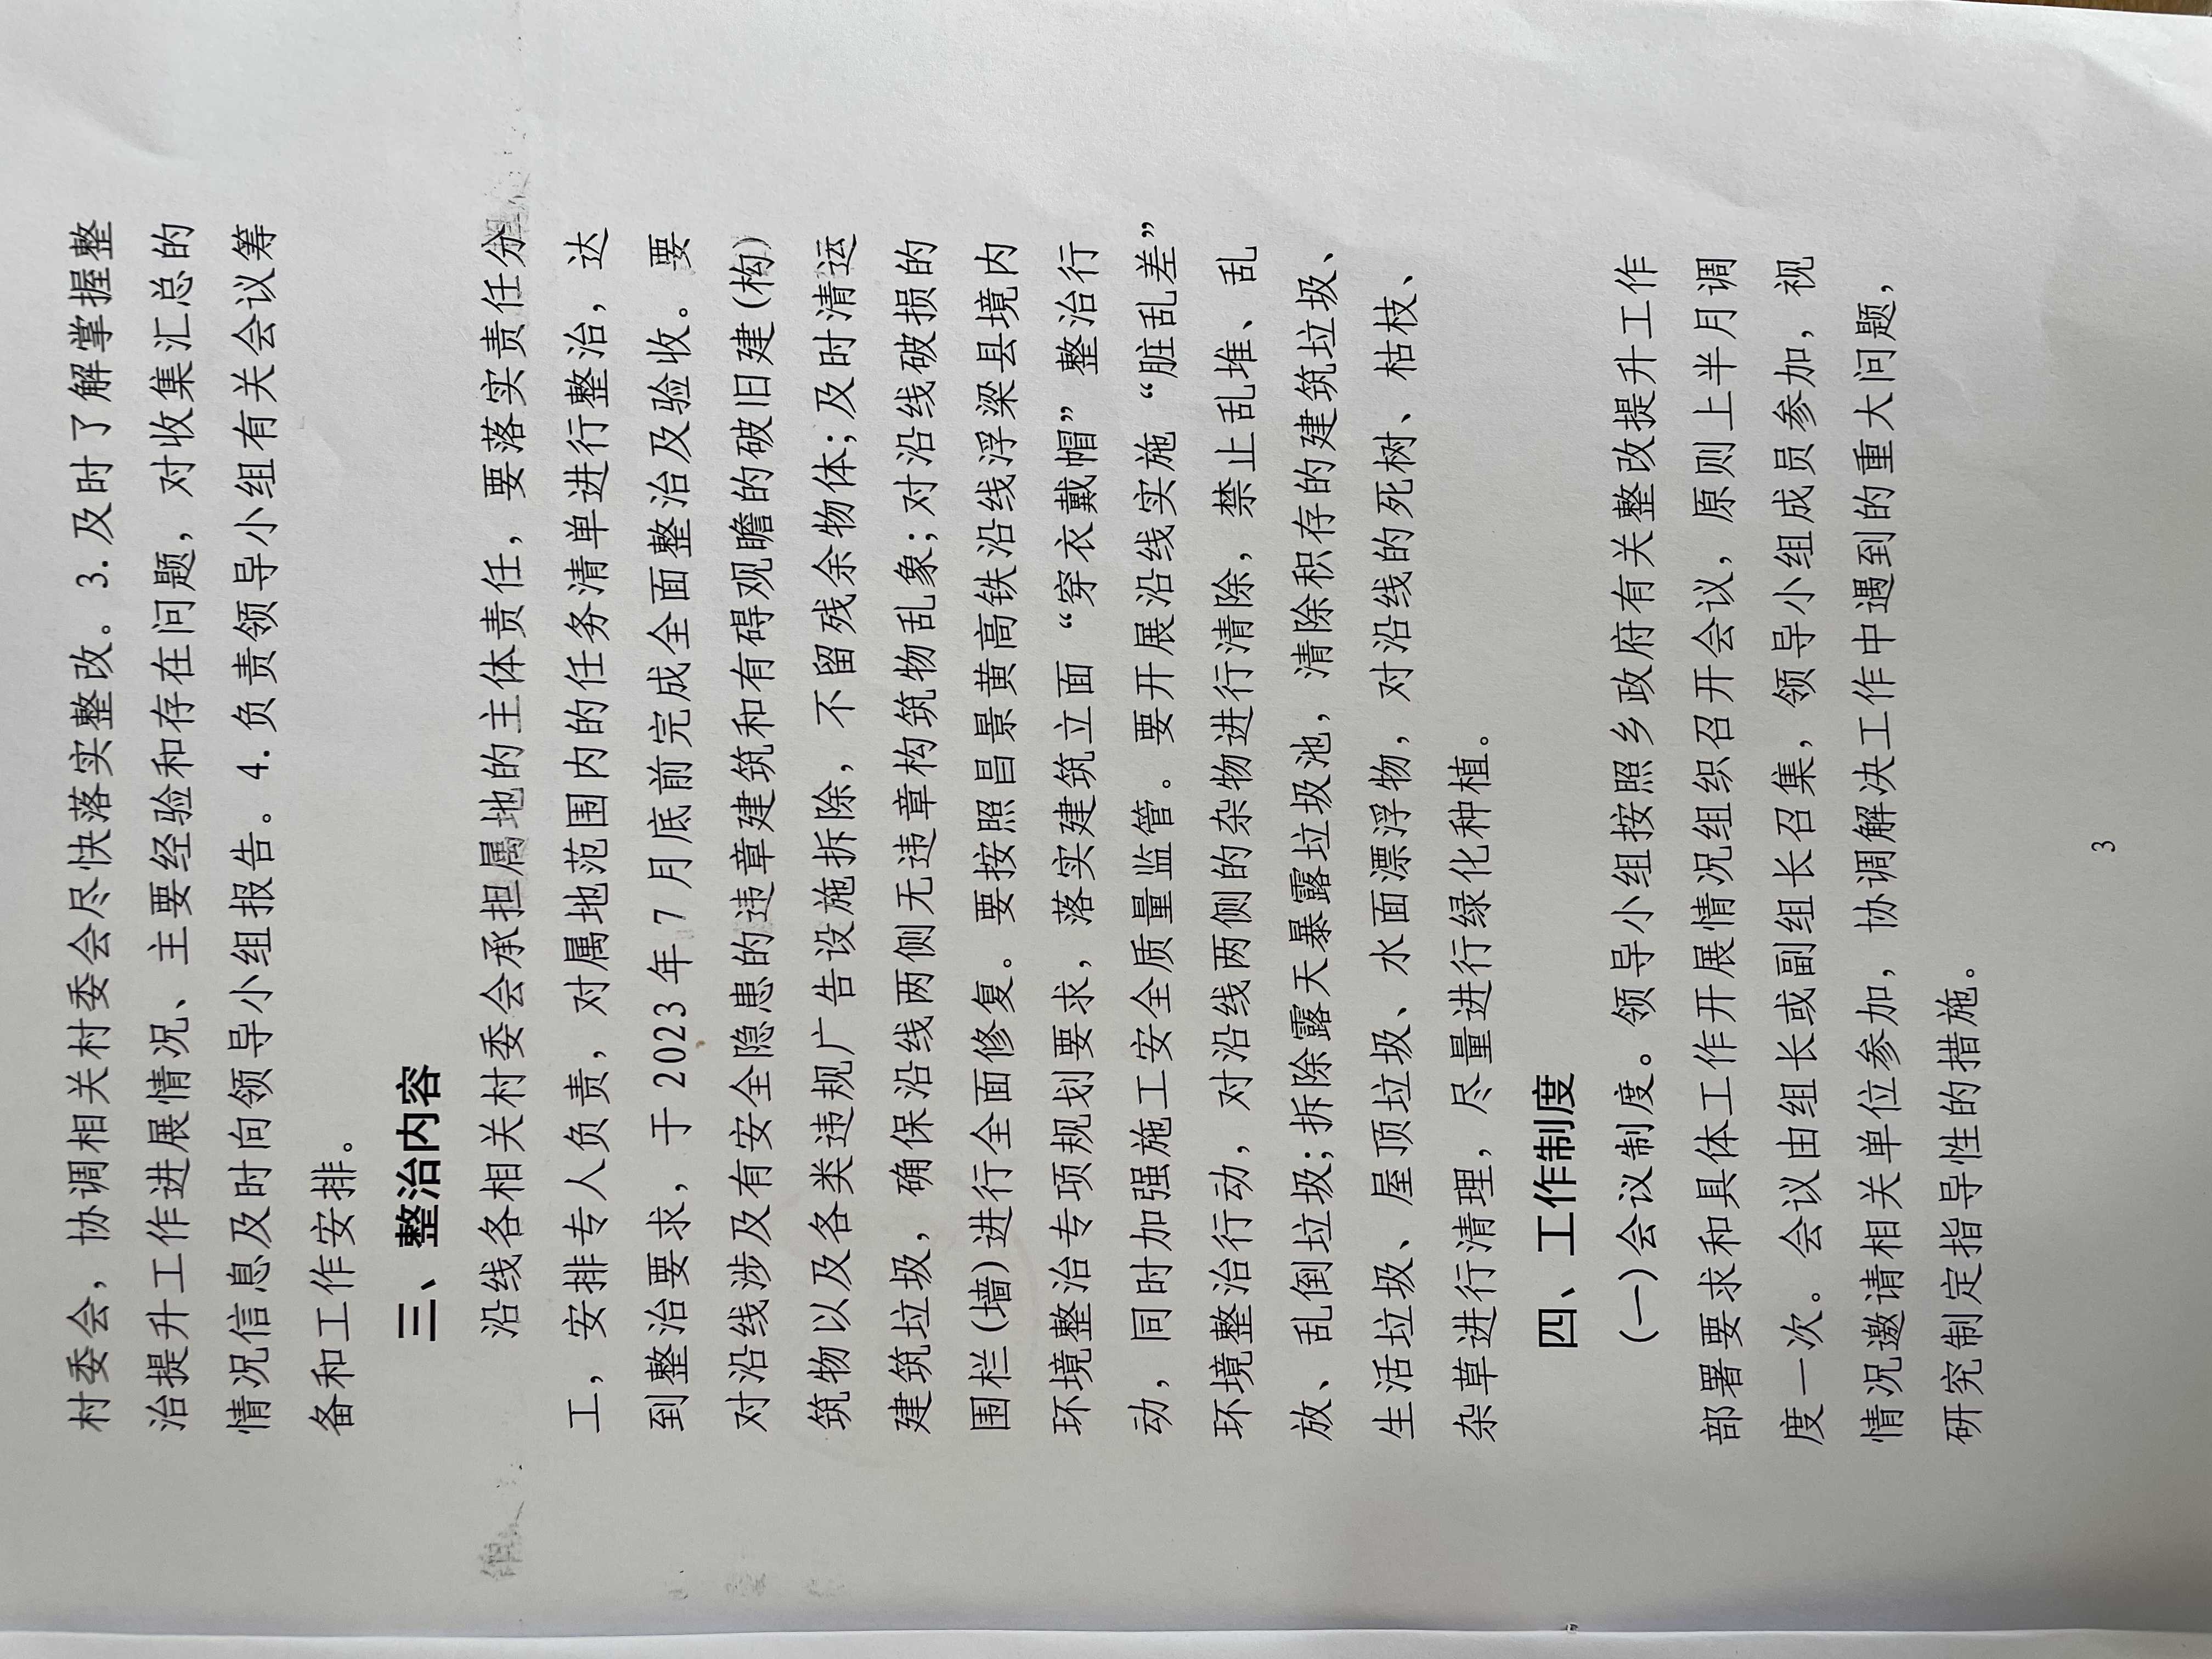 村委会，协调相关村委会尽快落实整改。3.及时了解掌握整
治提升工作进展情况、主要经验和存在问题，对收集汇总的
情况信息及时向领导小组报告。4.负责领导小组有关会议筹
备和工作安排。
三、整治内容
沿线各相关村委会承担属地的主体责任，要落实责任分
工，安排专人负责，对属地范围内的任务清单进行整治，达
到整治要求，于2023年7月底前完成全面整治及验收。要
对沿线涉及有安全隐患的违章建筑和有碍观瞻的破旧建(构)
筑物以及各类违规广告设施拆除，不留残余物体；及时清运
建筑垃圾，确保沿线两侧无违章构筑物乱象；对沿线破损的
围栏(墙)进行全面修复。要按照昌景黄高铁沿线浮梁县境内
环境整治专项规划要求，落实建筑立面“穿衣戴帽”整治行
动，同时加强施工安全质量监管。要开展沿线实施“脏乱差”
环境整治行动，对沿线两侧的杂物进行清除，禁止乱堆、乱
放、乱倒垃圾；拆除露天暴露垃圾池，清除积存的建筑垃圾、
生活垃圾、屋顶垃圾、水面漂浮物，对沿线的死树、枯枝、
杂草进行清理，尽量进行绿化种植。
四、工作制度
(一)会议制度。领导小组按照乡政府有关整改提升工作
部署要求和具体工作开展情况组织召开会议，原则上半月调
度一次。会议由组长或副组长召集，领导小组成员参加，视
情况邀请相关单位参加，协调解决工作中遇到的重大问题，
研究制定指导性的措施。
3